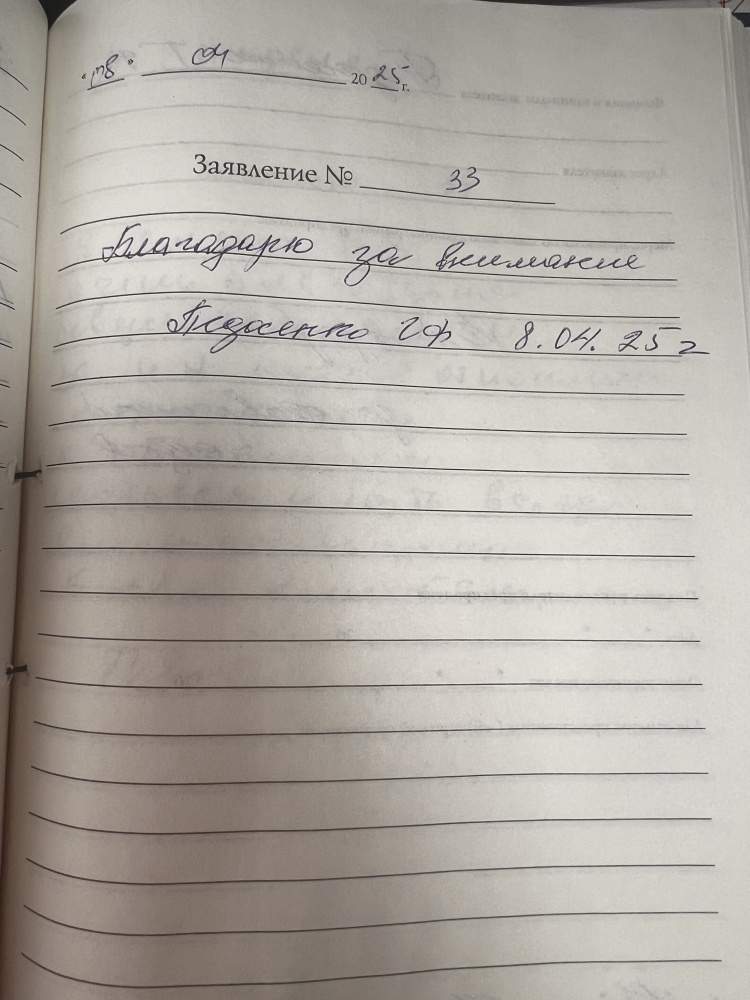 "08" 04 2025 г.
Заявление № 33
Благадарю за внимание
ГФ 8.04.25 г